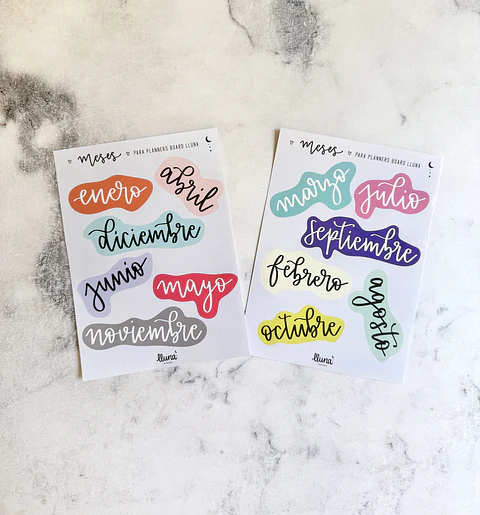 meses PARA PLANNERS BOARD LLUNA
enero
abril
diciembre
junio
mayo
noviembre
lluna
meses PARA PLANNERS BOARD LLUNA
marzo
julio
septiembre
febrero
agosto
octubre
lluna